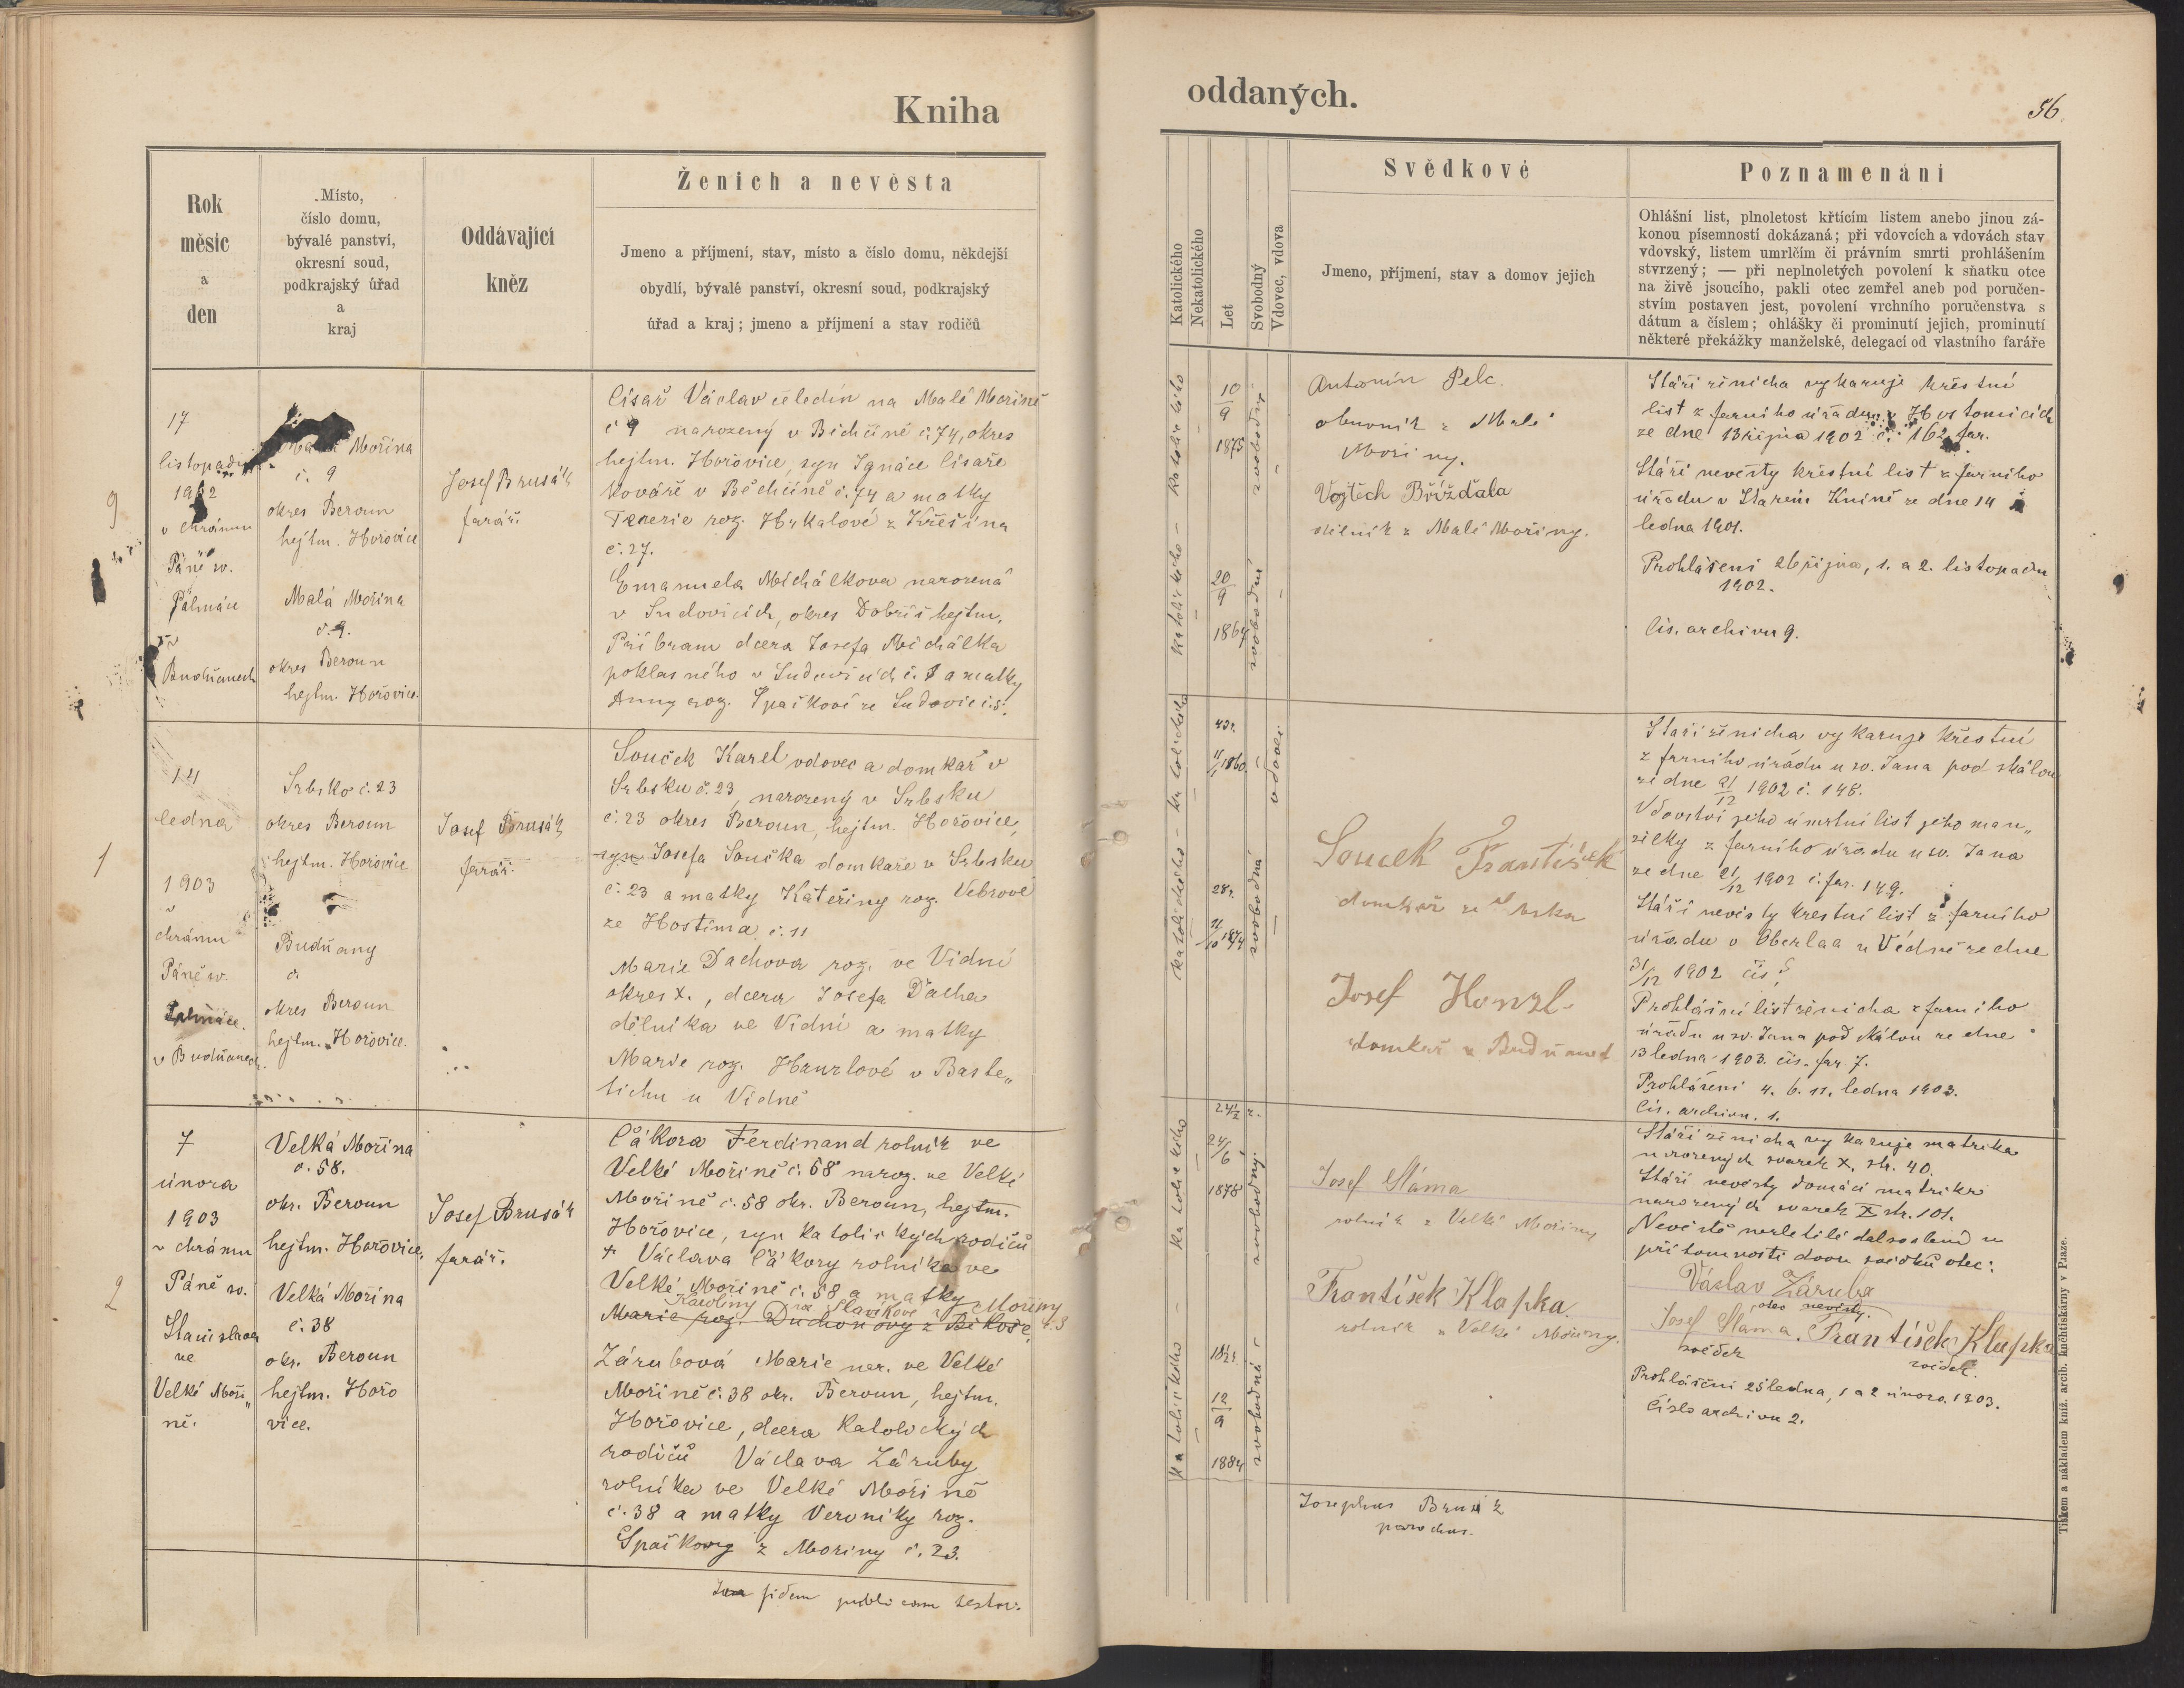 Kniha
Rok
měsíc
a
den
Místo,
číslo domu,
bývalé panství,
okresní soud,
podkrajský úřad
a
kraj
Oddávající
kněz
Ženich a nevěsta
Jmeno a příjmení, stav, místo a číslo domu, někdejší
obydlí, bývalé panství, okresní soud, podkrajský
úřad a kraj; jmeno a příjmení a stav rodičů
9
17
listopadu
1902
v chrámu
Páně sv.
Palmáce
v
Budňanech
Malá Mořina
č. 9
okres Beroun
hejtm. Hořovice
Malá Mořina
č. 9.
okres Beroun
hejtm. Hořovice.
Josef Brusák
farář.
Císař Václav čeledín na Malé Mořině
č 9 narozený v Běchčíně č. 74, okres
hejtm. Hořovice, syn Ignáce Císaře
kováře v Běchčíně č. 74 a matky
roz. Hrkalové z Křešína
č. 27.
Emanuela Michálkova narozená
v Sudovicích, okres Dobříš hejtm.
Příbram dcera Josefa Michálka
poklasného v Sudovicích č. 1 a matky
Anny roz. Špačkové ze Sudovic č. 5.
1
14
ledna
1903
v
chrámu
Páně sv.
Palmáce.
v Budňanech.
Srbsko č. 23
okres Beroun
hejtm. Hořovice
Budňany
č.
okres Beroun
hejtm. Hořovice.
Josef Brusák
farář.
Souček Karel vdovec a domkař v
Srbsku č. 23, narozený v Srbsku
č. 23 okres Beroun, hejtm. Hořovice,
syn Josefa Součka domkaře v Srbsku
č. 23 a matky Kateřiny roz. Vebrové
ze Hostima č. 11
Marie Dachova roz. ve Vídni
okres X., dcera Josefa Dacha
dělníka ve Vídni a matky
Marie roz. Hanzlové v
u Vídně
2
7
února
1903
v chrámu
Páně sv.
Stanislava
ve
Velké Moři„
ně.
Velká Mořina
č. 58.
okr. Beroun
hejtm. Hořovice,
Velká Mořina
č. 38
okr. Beroun
hejtm. Hořo
vice.
Josef Brusák
farář.
Čákora Ferdinand rolník ve
Velké Mořině č. 58 naroz. ve Velké
Mořině č. 58 okr. Beroun, hejtm.
Hořovice, syn katolických rodičů
+ Václava Čákory rolníka ve
Velké Mořině č. 58 a matky
Karoliny roz. Slavíkové z Mořiny č. 3
Marie roz. Duchoňovy z Bíkoše,
Zárubová Marie nar. ve Velké
Mořině č. 38 okr. Beroun, hejtm.
Hořovice, dcera katolických
rodičů Václava Záruby
rolníka ve Velké Mořině
č. 38 a matky Veroniky roz.
Špačkovy z Mořiny č. 23.
fidem publicam testor.
oddaných.
56.
Katolického
Nekatolického
Let
Svobodný
Vdovec, vdova
Svědkové
Jmeno, příjmení, stav a domov jejich
Poznamenání
Ohlášní list, plnoletost křtícím listem anebo jinou zá-
konou písemností dokázaná; při vdovcích a vdovách stav
vdovský, listem umrlčím či právním smrti prohlášením
stvrzený; — při neplnoletých povolení k sňatku otce
na živě jsoucího, pakli otec zemřel aneb pod poručen-
stvím postaven jest, povolení vrchního poručenstva s
dátum a číslem; ohlášky či prominutí jejich, prominutí
některé překážky manželské, delegací od vlastního faráře
katolického
10
9
1875
svobodný
katolického
20
9
1864
svobodná
Antonín Pelc.
obuvník z Malé
Mořiny.
Vojtěch Bříždala
dělník z Malé Mořiny.
Stáří ženicha vykazuje křestní
list z farního úřadu v Hostomicích
ze dne 13 října 1902 č. 162 far.
Stáří nevěsty křestní list z farního
úřadu v Starém Kníně ze dne 14
ledna 1901.
Prohlášení 26 října, 1. a 2. listopadu
1902.
Čís. archivu 9.
katolického
43 r.
11/1 1860.
vdovec
katolického
28 r.
11/10 1874
svobodná
Soucek František
domkař ze Srbska
Josef Hanzl
domkař v Budňanech
Stáří ženicha vykazuje křestní
z farního úřadu u sv. Jana pod skálou
ze dne 21/12 1902 č. 148.
Vdovství jeho úmrtní list jeho man„
želky z farního úřadu u sv. Jana
ze dne 21/12 1902 č. far. 149.
Stáří nevěsty křestní list z farního
úřadu v Oberlaa u Vídně ze dne
31/12 1902 čís.
Prohlášní list ženicha z farního
úřadu u sv. Jana pod skálou ze dne
13 ledna 1903. čís. far. 7.
Prohlášení 4. 6. 11. ledna 1903.
Čís. archivu. 1.
katolického
24½ r.
24/6
1878
svobodný
katolického
18½ r.
12
9
1884
svobodná
Josef Sláma
rolník z Velké Mořiny
František Klapka
rolník z Velké Mořiny.
Stáří ženicha vykazuje matrika
narozených svazek X. str. 40.
Stáří nevěsty domácí matrika
narozených svazek X str. 101.
Nevěstě nezletilé dal svolení v
přítomnosti dvou svědků otec:
Václav Záruba
otec nevěsty.
Josef Slama. František Klapka
svědek svědek.
Prohlášení 25 ledna, 1 a 2 února 1903.
Číslo archivu 2.
Josephus Brusák
parochus.
Tiskem a nákladem kníž. arcib. knihtiskárny v Praze.